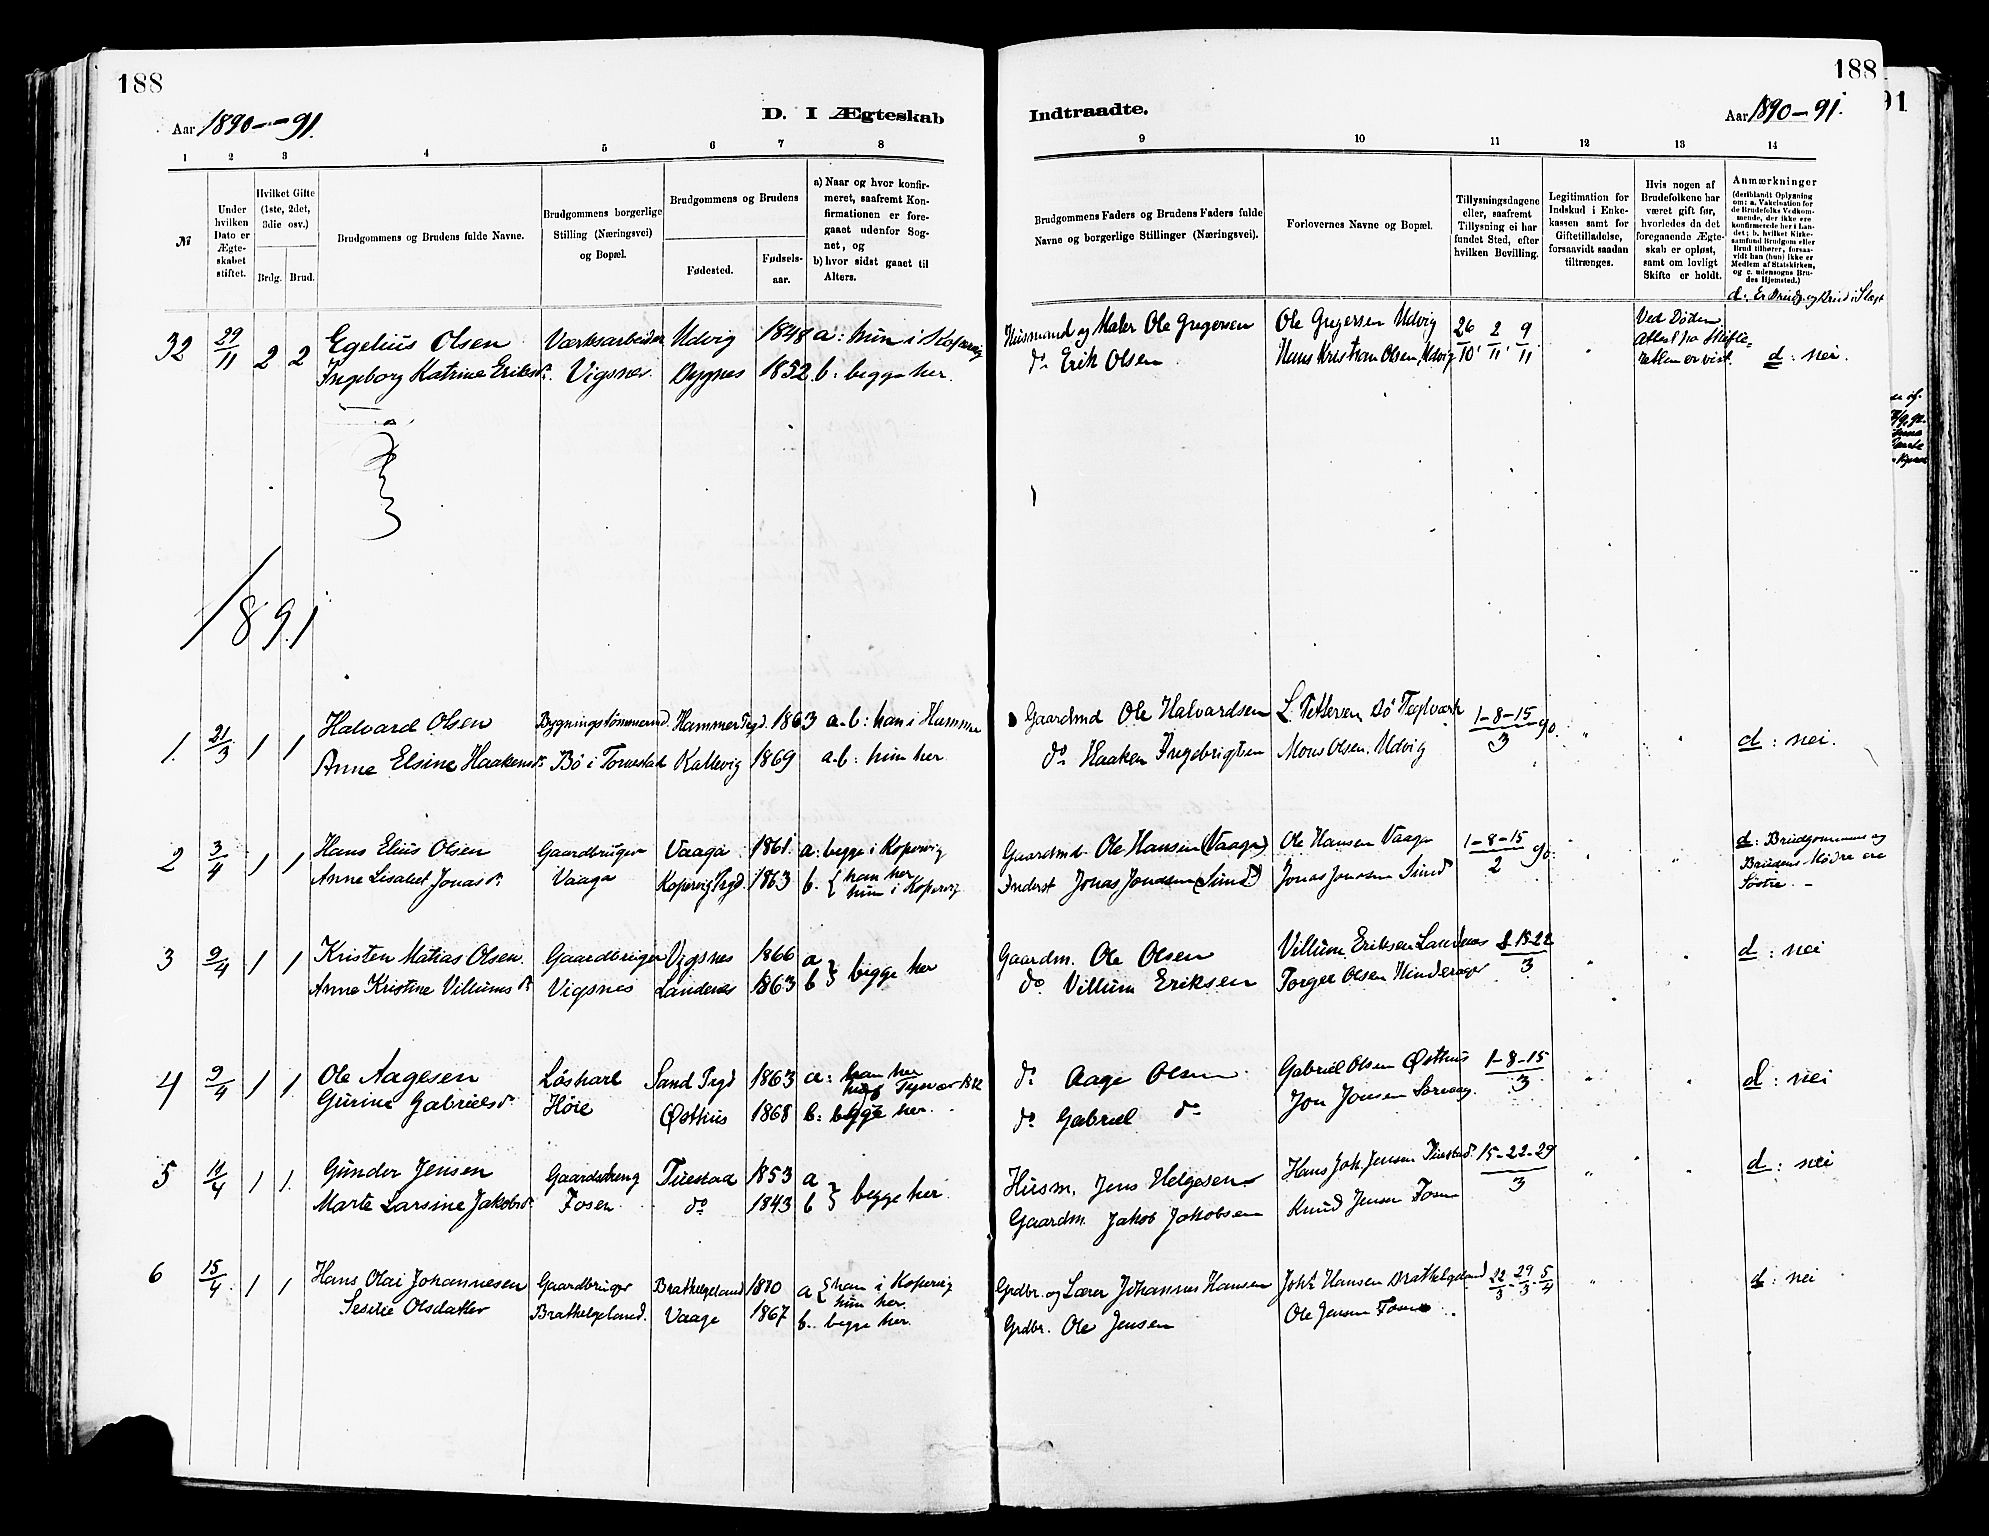 188
188
91
Aar 1890 - 91.
D. I Ægteskab
Indtraadte.
Aar 1890 - 91.
1 2 3 4 5 6 7 8 9 10 11 12 13 14
№
Under hvilken Dato er Ægteskabet stiftet.
Hvilket Gifte (1ste, 2det, 3die osv.)
Brdg. Brud.
Brudgommens og Brudens fulde Navne.
Brudgommens borgerlige Stilling (Næringsvei) og Bopæl.
Brudgommens og Brudens
Fødested.
Fødselsaar.
a) Naar og hvor konfirmeret, saafremt Konfirmationen er foregaaet udenfor Sognet, og
b) hvor sidst gaaet til Alters.
Brudgommens Faders og Brudens Faders fulde Navne og borgerlige Stillinger (Næringsvei).
Forlovernes Navne og Bopæl.
Tillysningsdagene eller, saafremt Tillysning ei har fundet Sted, efter hvilken Bevilling.
Legitimation for Indskud i Enkekassen samt for Giftetilladelse, forsaavidt saadan tiltrænges.
Hvis nogen af Brudefolkene har været gift før, hvorledes da det foregaaende Ægteskab er opløst, samt om lovligt Skifte er holdt.
Anmærkninger
(deriblandt Oplysning om: a. Vakcination for de Brudefolks Vedkommende, der ikke ere konfirmerede her i Landet; b. hvilket Kirkesamfund Brudgom eller Brud tilhører, forsaavidt han (hun) ikke er Medlem af Statskirken, og c. udensogns Brudes Hjemsted.)
d: Er Brudg. og Brud i Slægt
32 29/11 2 2 Egelius Olsen Værksarbeider Udvig 1848 a: hun i Kopervig Husmand og Maler Ole Gregersen Ole Gregersen Udvig 26/10, 2/11, 9/11 Ved Døden
Ingeborg Katrine Eriksd. Vigsnes Dygnes 1852 b: begge her. do Erik Olsen Hans Kristian Olsen, Udvig Attest fra Skifteretten er vist. d: nei.
1891
1. 21/3 1 1 Halvard Olsen Bygningstømmermd. Hammer Prgd. 1863 a-b: han i Hammer Gaardmd Ole Halvardsen L. Pettersen Bö Teglværk 1-8-15/3 90.
Anne Elsine Haakensd. Bö i Torvestad Kallevig 1869 a-b: hun her do Haaken Ingebrigtsen Mons Olsen, Udvig d: nei.
2 3/4 1 1 Hans Elius Olsen Gaardbruger Vaaga 1861 a: begge i Kopervig Gaardmd. Ole Hansen (Vaage) Ole Hansen Vaage 1-8-15/2 90. d: Brudgommens og
Anne Lisabet Jonasd. Vaaga Kopervig Prgd. 1863 b. { han her hun i Kopervig Inderst Jonas Jonassen (Sund) Jonas Jonassen Sund Brudens Mødre ere Søstre. -
3 9/4 1 1 Kristen Matias Olsen. Gaardbruger Vigsnes 1866 a Gaardm. Ole Olsen Villum Eriksen Landenes 8-15-22/3 d: nei
Anne Kristine Villumsd. Vigsnes Landenes 1863 b } begge her do Villum Eriksen Torger Olsen Hinderager
4 9/4 1 1 Ole Aagesen Løskarl Sand Prgd 1863 a: han her do Aage Olsen Gabriel Olsen Østhus 1-8-15/3 d: nei
Gurine Gabrielsd. Høie Østhus 1868 b: begge her. do Gabriel do Jon Jonsen
5 11/4 1 1 Gunder Jensen Tuestad 1853 a Husm. Jens Helgesen Hans Joh. Jensen Tuestad. 15-22-29/3 d: nei
Marte Larsine Jakobsd. Fosen do 1843 b } begge her Gaardm. Jakob Jakobsen Knud Jensen Fosen
6 15/4 1 1 Hans Olai Johannesen Gaardbruger Brathelgeland 1870 a { han i Kopervig hun her. Grdbr. og Lærer Johannes Hansen Joh. Hansen Brathelgeland 22/3 29/3 5/4 d: nei
Olsdatter Brathelgeland. Vaage 1867 b. begge her. Grdbr. Ole Jensen Ole Jensen Fosen